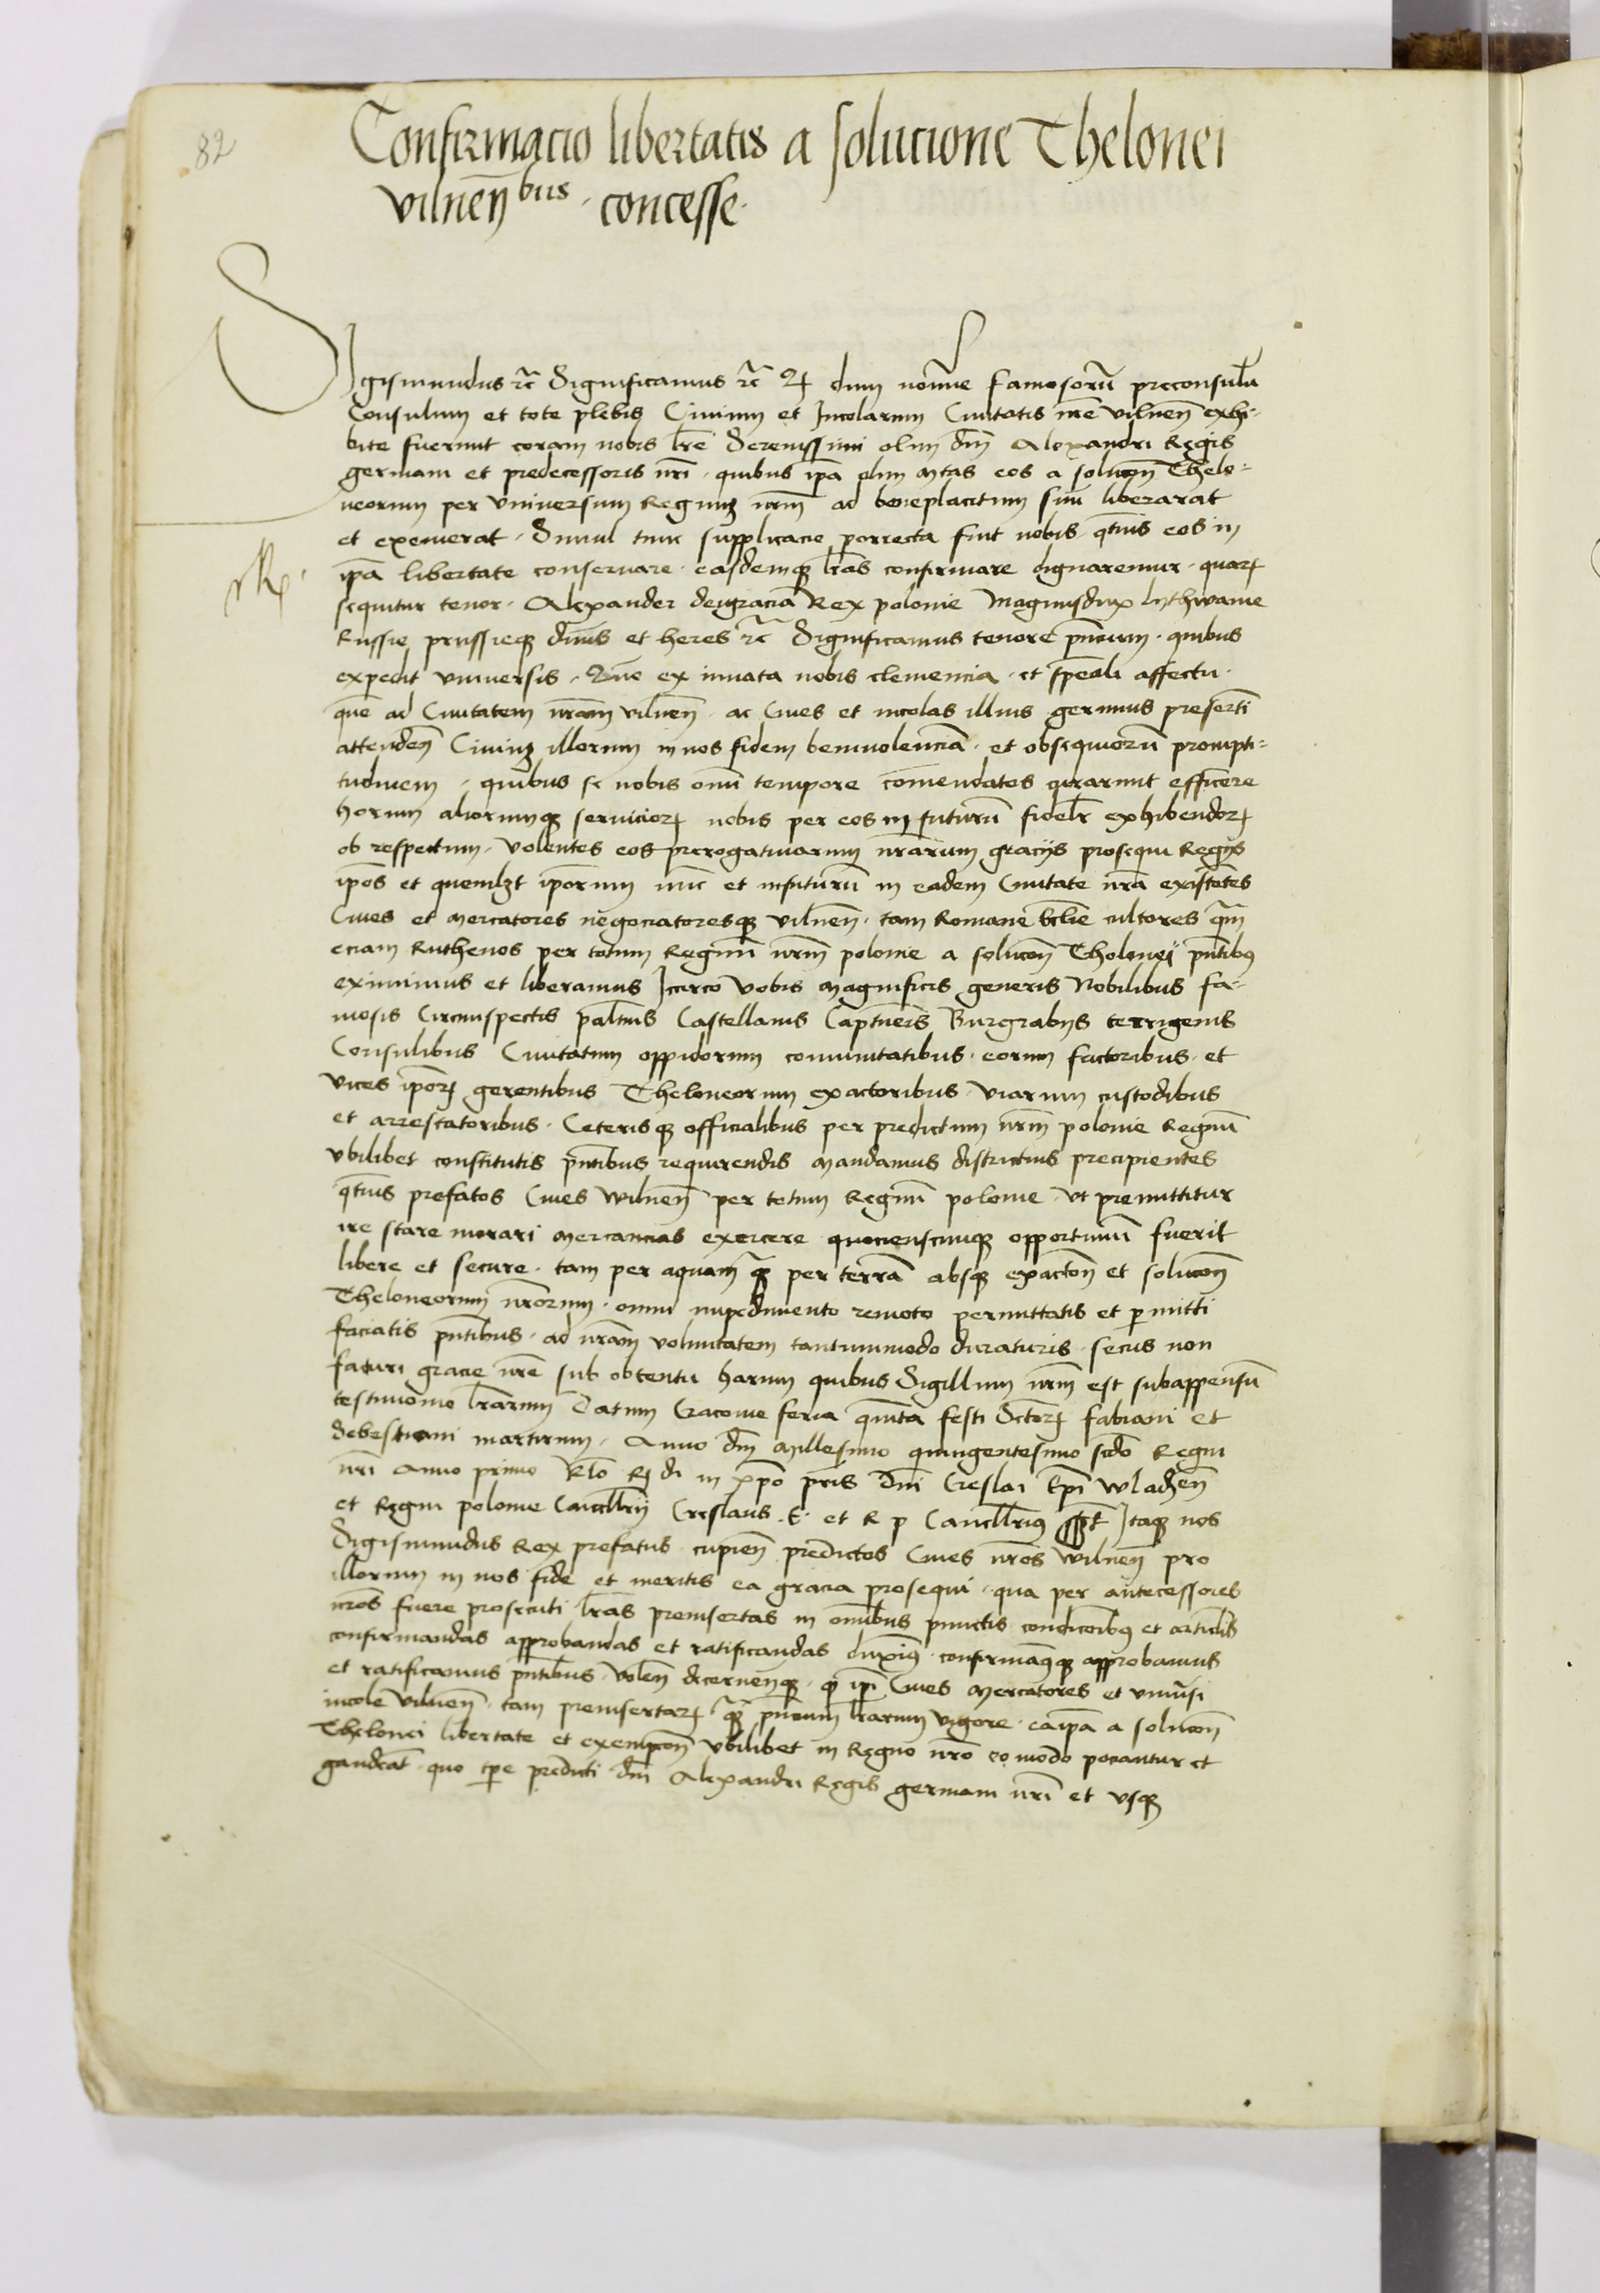 82
Confirmacio libertatis a solucione Thelonei
vilneñbus concesse
Sigismundus rc̃ Significamus rc̃ Qꝫ dum noĩe famosorũ preconsulũ
Consulum et tote plebis Civium et Incolarum Civitatis nr̃e vilneñ exhi-
bite fuerunt coram nobis lr̃e Serenissimi olim dñi Alexandri Regis
germani et predecessoris nr̃i quibus ip̃a olim Mtas eos a solucoñ Thelo-
neorum per vniversum Regnum nr̃m ad beneplacitum suũ liberarat
et exemerat Simul tunc supplicacio porrecta fuit nobis qt̃nus eos in
ip̃a libertate conservare easdemqꝫ lr̃as confirmare dignaremur quarꝝ
sequitur tenor Alexander deigracia Rex polonie Magnusdux lythwanie
Russie prussieqꝫ dñus et heres rc̃ Significamus tenore pñcium quibus
expedit vniversis Quo ex innata nobis clemencia et sp̃eali affectu
quẽ ad Civitatem nr̃am vilneñ ac Cives et incolas illius gerimus preserti
attendeñ Civiũ illorum in nos fidem benivolenciã et obsequiorũ prompti-
tudinem quibus se nobis omni tempore comendatos curarunt efficere
horum aliorumqꝫ serviciorꝝ nobis per eos in futurũ fidelr̃ exhibendorꝝ
ob respectum volentes eos prerogativarum nr̃arum gracijs prosequi Regijs
ip̃os et quemlꝫt ip̃orum nũc et infuturũ in eadem Civitate nr̃a existẽtes
Cives et mercatores negociatoresqꝫ vilneñ tam Romane eccl̃ie cultores qm̃
eciam Ruthenos per totum Regnũ nr̃m polonie a solucoñ Tholonei pñtibꝰ
eximimus et liberamus Iccirco vobis magnificis generis Nobilibus fa-
mosis Circumspectis palt̃inis Castellanis Capt̃neis Burgrabijs terrigenis
Consulibus Civitatum oppidorum comunitatibus eorum factoribus et
vices ip̃orꝝ gerentibus Theloneorum exactoribus viarum custodibus
et arrestatoribus Ceterisqꝫ officialibus per predictum nr̃m polonie Regnũ
vbilibet constitutis pñtibus requirendis mandamus districtius precipientes
qt̃nus prefatos Cives wilneñ per totum Regnũ polonie vt premittitur
ire stare morari mercancias exercere quociescumqꝫ opportunũ fuerit
libere et secure tam per aquam qꝫ per terrã absqꝫ exactoñ et solucoñ
Theloneorum nr̃orum omni impedimento remoto permittatis et permitti
faciatis pñtibus ad nr̃am voluntatem tantummodo duraturis secus non
facturi gracie nr̃e sub obtentu harum quibus Sigillum nr̃m est subappensũ
testimonio lr̃arum Datum Cracovie feria quinta festi Sctorꝝ fabiani et
Sebestiani martirum Anno dñi Millesimo quingentesimo scdo Regni
nr̃i Anno primo Rlo Rꝫ di in xp̃o pr̃is dñi Creslai Ep̃i wladeñ
et Regni polonie Cancell̃rij Creslaus E et R p Cancell̃riꝰ sspt Itaqꝫ nos
Sigismundus Rex prefatus cupieñ predictos Cives nr̃os wilneñ pro
illorum in nos fide et meritis ea gracia prosequi qua per antecessores
nr̃os fuere prosecuti lr̃as preinsertas in omĩbus punctis condicoĩbꝰ et articulis
confirmandas approbandas et ratificandas duximꝰ confirmamꝰqꝫ approbamus
et ratificamus pñtibus voleñ decerneñqꝫ qꝫ ip̃i Cives mercatores et vniũsi
incole vilneñ tam preinsertarꝝ qꝫ pñcium lr̃arum vigore eaip̃a a solucoñ
Thelonei libertate et exempcoñ vbilibet in Regno nr̃o eo modo pocantur et
gaudeãt quo tp̃e predicti dñi Alexandri Regis germani nr̃i et vsqꝫ